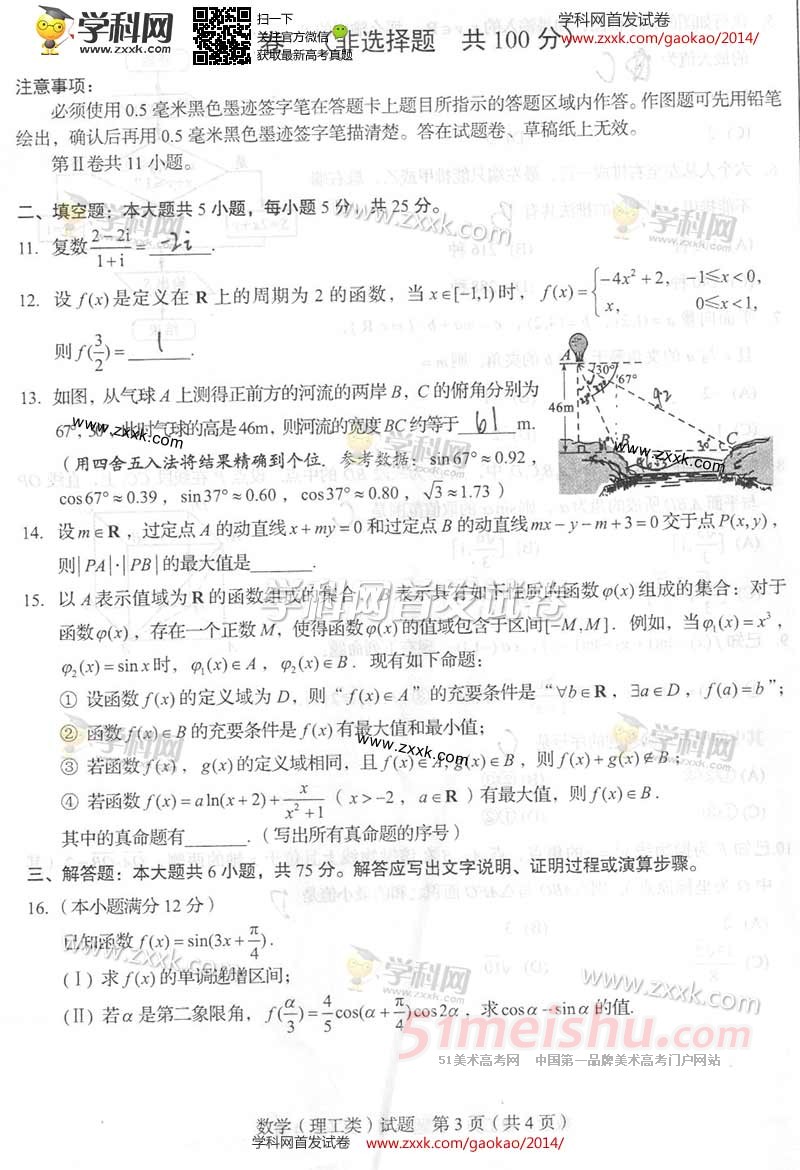 学科网
www.zxxk.com
扫一下
关注官方微信
获取最新高考真题
学科网首发试卷
www.zxxk.com/gaokao/2014/
卷 (非选择题 共100分)
注意事项:
必须使用0.5毫米黑色墨迹签字笔在答题卡上题目所指示的答题区域内作答。作图题可先用铅笔
绘出,确认后再用0.5毫米黑色墨迹签字笔描清楚。答在试题卷、草稿纸上无效。
第Ⅱ卷共11小题。
二、填空题:本大题共5小题,每小题5分,共25分。
11. 复数 (2-2i)/(1+i) = -2i .
12. 设 f(x) 是定义在 R 上的周期为2的函数,当 x∈[-1,1) 时, f(x)={-4x²+2, -1≤x<0, x, 0≤x<1,
则 f(3/2) = 1 .
13. 如图,从气球 A 上测得正前方的河流的两岸 B,C 的俯角分别为
67°,30°,此时气球的高是46m,则河流的宽度 BC 约等于 61 m.
(用四舍五入法将结果精确到个位. 参考数据: sin67°≈0.92,
cos67°≈0.39, sin37°≈0.60, cos37°≈0.80, √3≈1.73)
A 30° 67° 46m 92 B 30° C
14. 设 m∈R,过定点 A 的动直线 x+my=0 和过定点 B 的动直线 mx-y-m+3=0 交于点 P(x,y),
则 |PA|·|PB| 的最大值是______.
15. 以 A 表示值域为 R 的函数组成的集合,B 表示具有如下性质的函数 φ(x) 组成的集合:对于
函数 φ(x),存在一个正数 M,使得函数 φ(x) 的值域包含于区间 [-M,M]. 例如,当 φ₁(x)=x³,
φ₂(x)=sinx 时, φ₁(x)∈A, φ₂(x)∈B. 现有如下命题:
① 设函数 f(x) 的定义域为 D,则“f(x)∈A”的充要条件是“∀b∈R, ∃a∈D, f(a)=b”;
② 函数 f(x)∈B 的充要条件是 f(x) 有最大值和最小值;
③ 若函数 f(x), g(x) 的定义域相同,且 f(x)∈A, g(x)∈B,则 f(x)+g(x)∉B;
④ 若函数 f(x)=aln(x+2)+x/(x²+1) (x>-2, a∈R) 有最大值,则 f(x)∈B.
其中的真命题有______.(写出所有真命题的序号)
三、解答题:本大题共6小题,共75分。解答应写出文字说明、证明过程或演算步骤。
16. (本小题满分12分)
已知函数 f(x)=sin(3x+π/4).
(Ⅰ) 求 f(x) 的单调递增区间;
(Ⅱ) 若 α 是第二象限角, f(α/3)=4/5 cos(α+π/4)cos2α,求 cosα-sinα 的值.
51meishu.com
51美术高考网 中国第一品牌美术高考门户网站
数学(理工类)试题 第3页(共4页)
学科网首发试卷
www.zxxk.com/gaokao/2014/